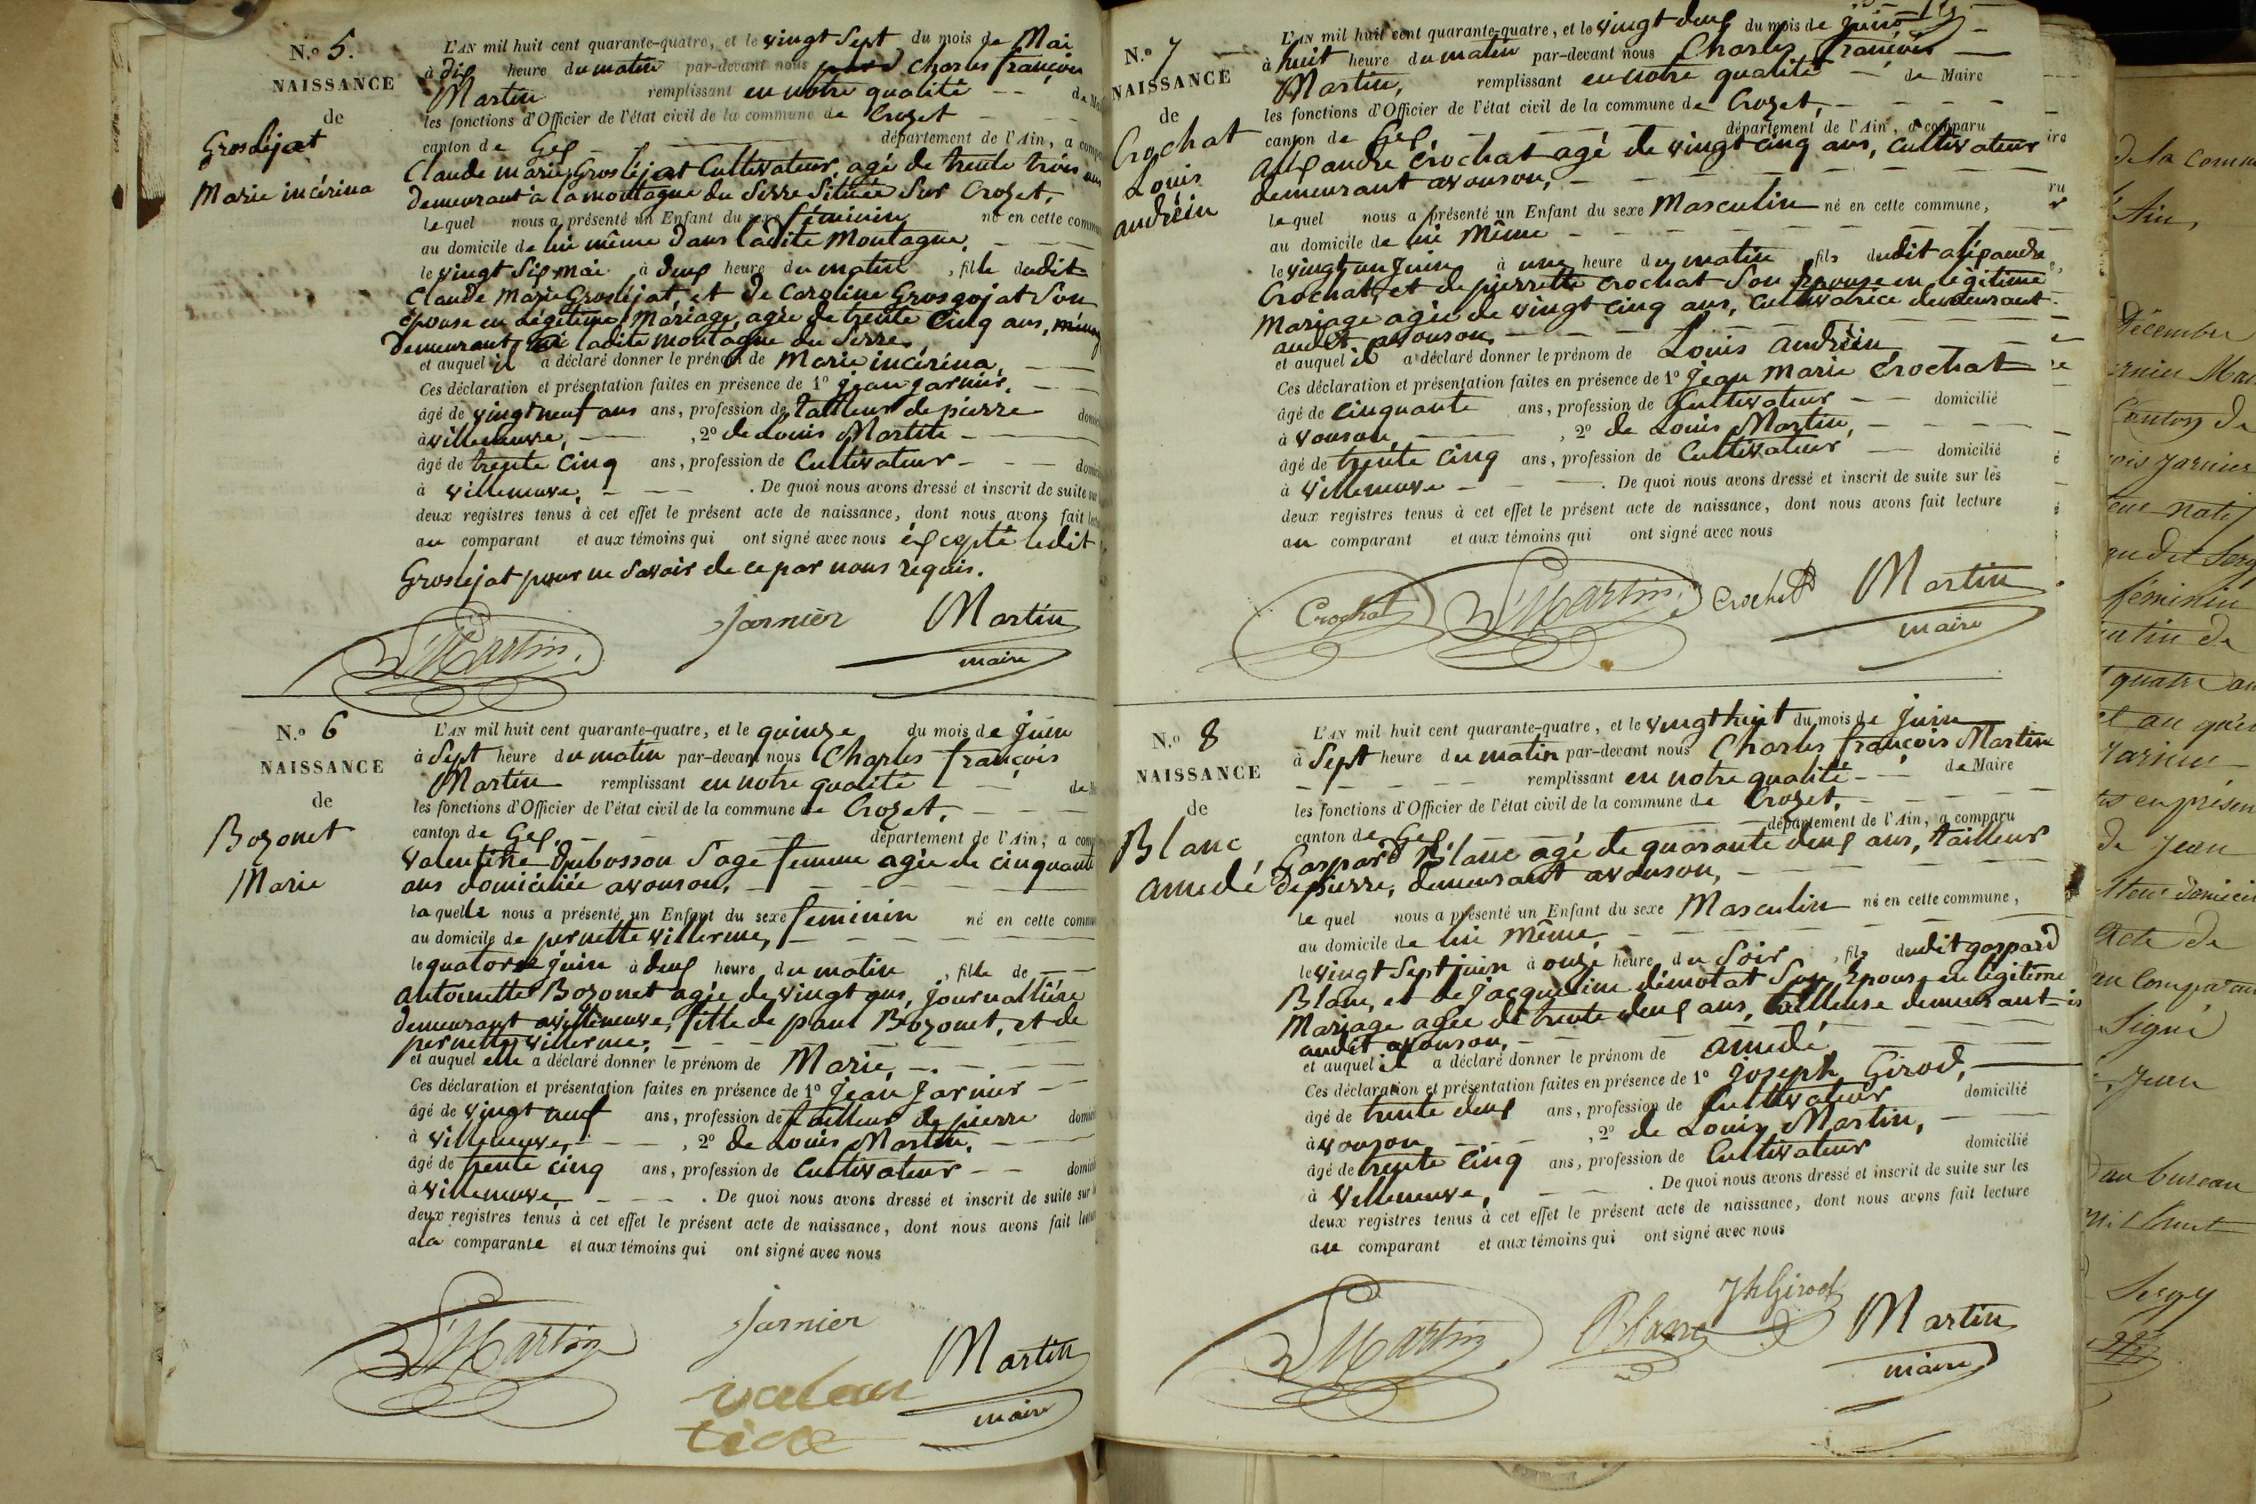 N.o 5.
NAISSANCE
de
Groslejat
Marie incérina
L'AN mil huit cent quarante-quatre, et le vingt Sept du mois de Mai
à dix heure du matin par-devant nous Charles françois
Martin remplissant en notre qualité
les fonctions d'Officier de l'état civil de la commune de Crozet
canton de Gex département de l'Ain, a
Claude marie Groslejat Cultivateur, agé de trente trois ans
demeurant à la montagne du Serre Située Sur Crozet,
lequel nous a présenté un Enfant du sexe féminin né en cette
au domicile de lui même dans ladite Montagne,
le vingt Six mai à deux heure du matin, fille dudit
Claude Marie Groslejat, et de Caroline Grosgojat Son
épouse en Légitime Mariage, agée de trente Cinq ans,
demeurant ladite montagne du Serre,
et auquel il a déclaré donner le prénom de Marie incérina,
Ces déclaration et présentation faites en présence de 1o jean jarnier,
âgé de vingt neuf ans ans, profession de tailleur de pierre
à villeneuve, , 2o de Louis Martin
âgé de trente Cinq ans, profession de Cultivateur
à villeneuve, . De quoi nous avons dressé et inscrit de suite
deux registres tenus à cet effet le présent acte de naissance, dont nous avons fait
au comparant et aux témoins qui ont signé avec nous éxcepté ledit
Groslejat pour ne Savoir de ce par nous requis.
L Martin. jarnier Martin
maire
N.o 6
NAISSANCE
de
Bozonet
Marie
L'AN mil huit cent quarante-quatre, et le quinze du mois de juin
à Sept heure du matin par-devant nous Charles françois
Martin remplissant en notre qualité
les fonctions d'Officier de l'état civil de la commune de Crozet,
canton de Gex. département de l'Ain, a
valentine Dubosson Sage femme agée de cinquante
ans domiciliée avouson,
laquelle nous a présenté un Enfant du sexe feminin né en cette
au domicile de pernette villerme,
le quatorze juin à deux heure du matin, fille de
antoinette Bozonet agée de vingt ans, journallière
demeurant avilleneuve, fille de paul Bozonet, et de
pernette villerme,
et auquel elle a déclaré donner le prénom de Marie,
Ces déclaration et présentation faites en présence de 1o jean jarnier
âgé de vingt neuf ans, profession de tailleur de pierre
à villeneuve, , 2o de Louis Martin,
âgé de trente cinq ans, profession de Cultivateur
à villeneuve . De quoi nous avons dressé et inscrit de suite sur
deux registres tenus à cet effet le présent acte de naissance, dont nous avons fait
ala comparante et aux témoins qui ont signé avec nous
L Martin jarnier Martin
maire
valan
tine
N.o 7
NAISSANCE
de
Crochat
Louis
andréin
L'AN mil huit cent quarante-quatre, et le vingt deux du mois de juin
à huit heure du matin par-devant nous Charles françois
Martin, remplissant en notre qualité de Maire
les fonctions d'Officier de l'état civil de la commune de Crozet,
canton de Gex, département de l'Ain, a comparu
aléxandre Crochat agé de vingt cinq ans, Cultivateur
demeurant avouson,
lequel nous a présenté un Enfant du sexe Masculin né en cette commune,
au domicile de lui Même
le vingt un juin à une heure du matin, fils dudit aléxandre
Crochat, et de pierrette Crochat Son épouse en légitime
Mariage agée de vingt cinq ans, Cultivatrice demeurant
audit avouson,
et auquel il a déclaré donner le prénom de Louis andréin
Ces déclaration et présentation faites en présence de 1o jean Marie Crochat
âgé de Cinquante ans, profession de Cultivateur domicilié
à vouson, , 2o de Louis Martin,
âgé de trente Cinq ans, profession de Cultivateur domicilié
à villeneuve . De quoi nous avons dressé et inscrit de suite sur les
deux registres tenus à cet effet le présent acte de naissance, dont nous avons fait lecture
au comparant et aux témoins qui ont signé avec nous
Crochat L Martin. Crochet Martin
maire
N.o 8
NAISSANCE
de
Blanc
amedé
L'AN mil huit cent quarante-quatre, et le vingt huit du mois de juin
à Sept heure du matin par-devant nous Charles françois Martin
remplissant en notre qualité de Maire
les fonctions d'Officier de l'état civil de la commune de Crozet,
canton de Gex. département de l'Ain, a comparu
Gaspard Blanc agé de quarante deux ans, tailleur
depierre, demeurant avouson,
lequel nous a présenté un Enfant du sexe Masculin né en cette commune,
au domicile de lui Même
le vingt Sept juin à onze heure du Soir, fils dudit gaspard
Blanc, et de jacqueline démotat Son Epouse en légitime
Mariage agée de trente deux ans, tailleuse demeurant
audit avouson,
et auquel il a déclaré donner le prénom de amedé,
Ces déclaration et présentation faites en présence de 1o joseph Girod,
âgé de trente deux ans, profession de Cultivateur domicilié
à vouson , 2o de Louis Martin,
âgé de trente Cinq ans, profession de Cultivateur domicilié
à villeneuve, . De quoi nous avons dressé et inscrit de suite sur les
deux registres tenus à cet effet le présent acte de naissance, dont nous avons fait lecture
au comparant et aux témoins qui ont signé avec nous
L Martin Blanc Jh Girod Martin
maire
de la
Ain,
Décembre
Canton de
jarnier
natif
féminin
quatre
de Jean
Acte de
Signé
Jean
au bureau
Sergy